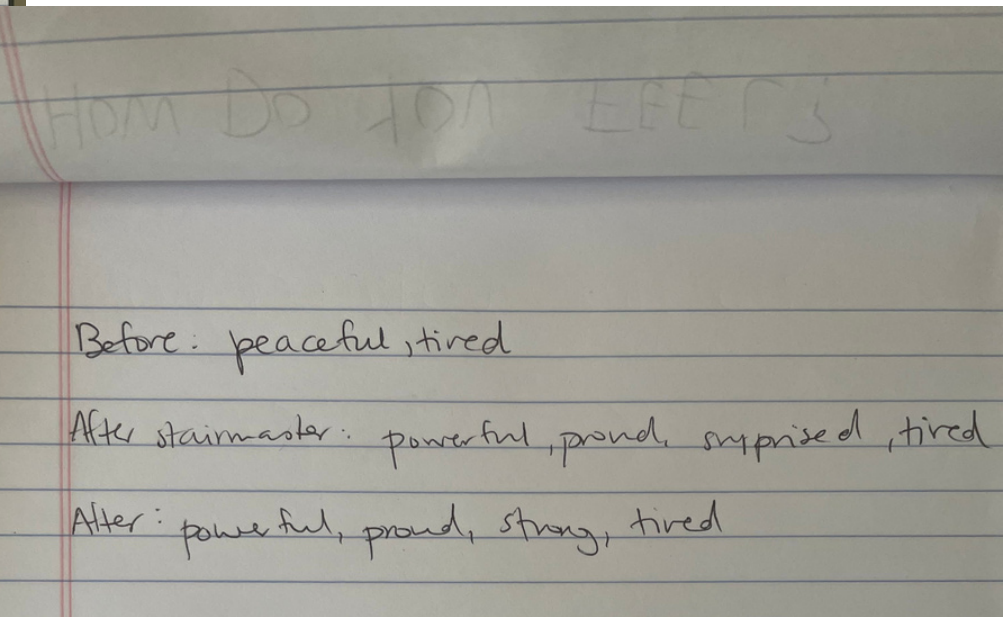 HOW DO YOU FEEL?
Before: peaceful, tired
After stairmaster: powerful, proud, surprised, tired
After: powerful, proud, strong, tired